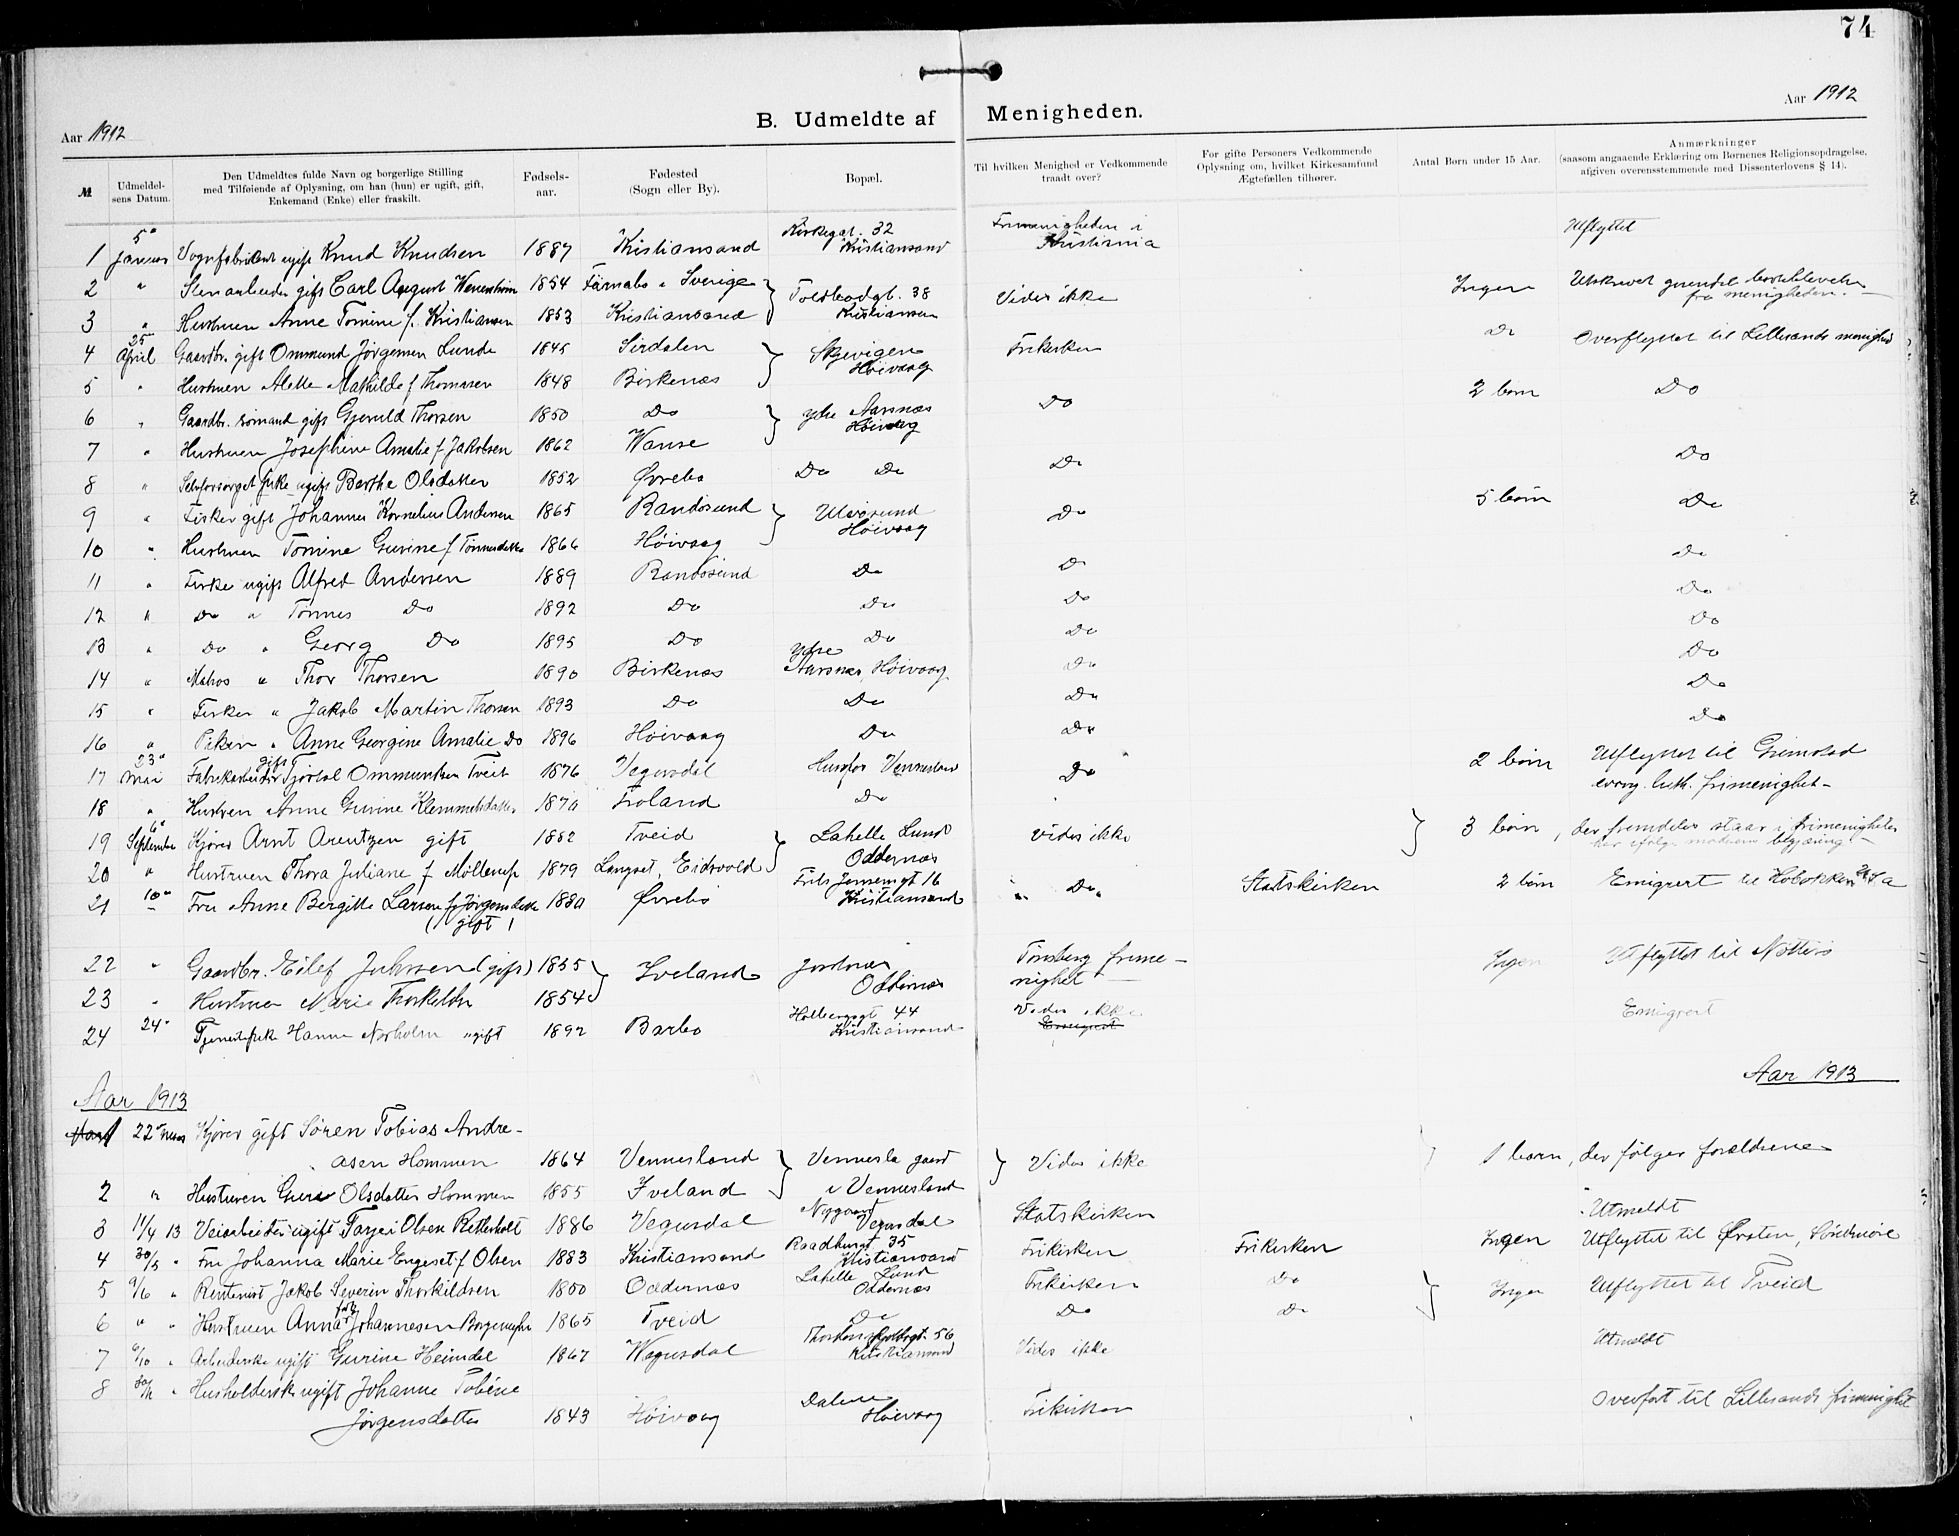 74
Aar 1912
B. Udmeldte af Menigheden.
Aar 1912
№
Udmeldel-
sens Datum.
Den Udmeldtes fulde Navn og borgerlige Stilling
med Tilføiende af Oplysning, om han (hun) er ugift, gift,
Enkemand (Enke) eller fraskilt.
Fødsels-
aar.
Fødested
(Sogn eller By).
Bopæl.
Til hvilken Menighed er Vedkommende
traadt over?
For gifte Personers Vedkommende
Oplysning om, hvilket Kirkesamfund
Ægtefællen tilhører.
Antal Børn under 15 Aar.
Anmærkninger
(saasom angaaende Erklæring om Børnenes Religionsopdragelse,
afgiven overensstemmende med Dissenterlovens § 14).
1 5" Januar Vognfabrikant ugift Knud Knudsen 1887 Kristiansand Kirkegt. 32 Kristiansand Frimenigheden i Kristiania Utflyttet
2 " Stenarbeider gift Carl August 1854 Färnabo i Sverige } Toldbodgt. 38 Vides ikke Ingen Utskrevet menigheden.
3 " Hustruen Anne Tomine f. Kristiansen 1853 Kristiansand Kristiansan
4 25" April Gaardbr. gift Ommund Jørgensen Lunde 1845 Sirdalen } Skjevigen Høivaag Frikirken Do Overflyttet til Lillesands menighed
5 " Hustruen Alette Mathilde f Thomasen 1848 Birkenæs 2 børn Do
6 " Gaardbr. sømand gift Gjeruld Thorsen 1850 Do } ytre Aarsnæs Høivaag Do
7 " Hustruen Josephine Amalie f Jakobsen 1862 Wanse Do
8 " Selvforsørget pike ugift Berthe Olsdatter 1852 Øvrebø Do Do Do
9 " Fisker gift Johannes Kornelius Andersen 1865 Randøsund } Ulvøsund Høivaag Do 5 børn Do
10 " Hustruen Tomine Gurine f Tønnesdatter 1866 Høivaag Do
11 " Fisker ugift Alfred Andersen 1889 Randøsund Do Do Do
12 " Do " Tønnes Do 1892 Do Do Do Do
13 " Do " Georg Do 1895 Do Do Do Do
14 " Matros " Thor Thorsen 1890 Birkenæs ytre Aarsnæs, Høivaag Do Do
15 " Fisker " Jakob Martin Thorsen 1893 Do Do Do Do
16 " Piken " Anne Georgine Amalie Do 1896 Høivaag Do Do
17 23" Mai Fabrikarbeider gift Tjøstol Ommundsen Tveit 1876 Vegusdal Hunsfos Vennesland Do 2 børn Utflyttet til Grimstad
18 " Hustruen Anne Gurine Klemmetsdatter 1870 Froland Do evang. luth. frimenighet-
19 6" September Kjører Arnt Arentzen gift 1882 Tveid } Lahelle Lund Oddernæs Vides ikke } 3 børn, der fremdeles staar i frimenigheten
20 " Hustruen Thora Juliane f Møllerup 1879 Langset, Eidsvold
21 10" Fru Anne Bergitte Larsen f Jørgensdatter (gift) 1880 Øvrebø Frits Jensensgt 16 Kristiansand " Do " Statskirken 2 børn Emigrert til Hoboken USA
22 " Gaardbr. Eilef (gift) 1855 } Iveland Oddernæs Tønsberg frime-
nighet Ingen Utflyttet til Nøtterø
23 " Hustrue Marie Thorkildsdr 1854
24 24" Tjenestepike Hanna Norholm ugift 1892 Barbo Holbergsgt 44 Kristiansand Vides ikke Emigrert Emigrert
Aar 1913
Aar 1913
22" Kjører gift Søren Tobias Andre-
asen Hommen 1864 Vennesland } Vennesla gaard } Vides ikke 1 barn, der følger forældrene
2 " Hustruen Olsdatter Hommen 1855 Iveland i Vennesland
3 11/4 13 Veiarbeider ugift Tarjei Olsen Retterholt 1886 Vegusdal Nygaard Vegusdal Statskirken Utmeldt
4 30/5 " Fru Johanna Marie Engeset f Olsen 1883 Kristiansand Raadhusgt 35 Kristiansand Frikirken Frikirken Ingen Utflyttet til Ørsten, Søndmøre
5 9/6 " Rentenist Jakob Severin Thorkildsen 1850 Oddernæs Lahelle Lund Oddernæs Frikirken Do } Ingen Utflyttet til Tveid
6 " " Hustruen Anna født Johannesen 1865 Tveid Do Do Do
7 9/10 " Arbeiderske ugift Gurine Heimdal 1867 Wegusdal 56 Kristiansand Vides ikke Utmeldt
8 " Husholderske ugift Johanne Tobine
Jørgensdatter 1843 Høivaag Dalene Høivaag Frikirken Overført til Lillesands frimenighet